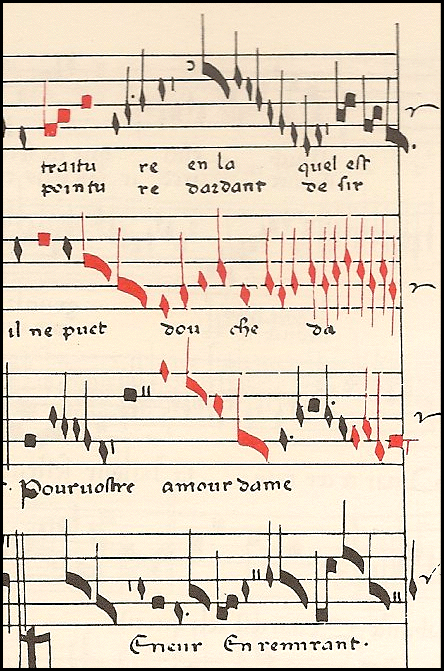 traitu re en la quel est
pointu re dardant de sir
il ne puet dou che da
Pour vostre amour dame
Teneur En remirant.